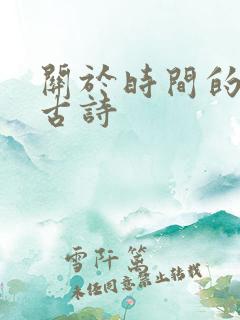 關於時間的
古詩
雪阡篱
未经同意禁止转载